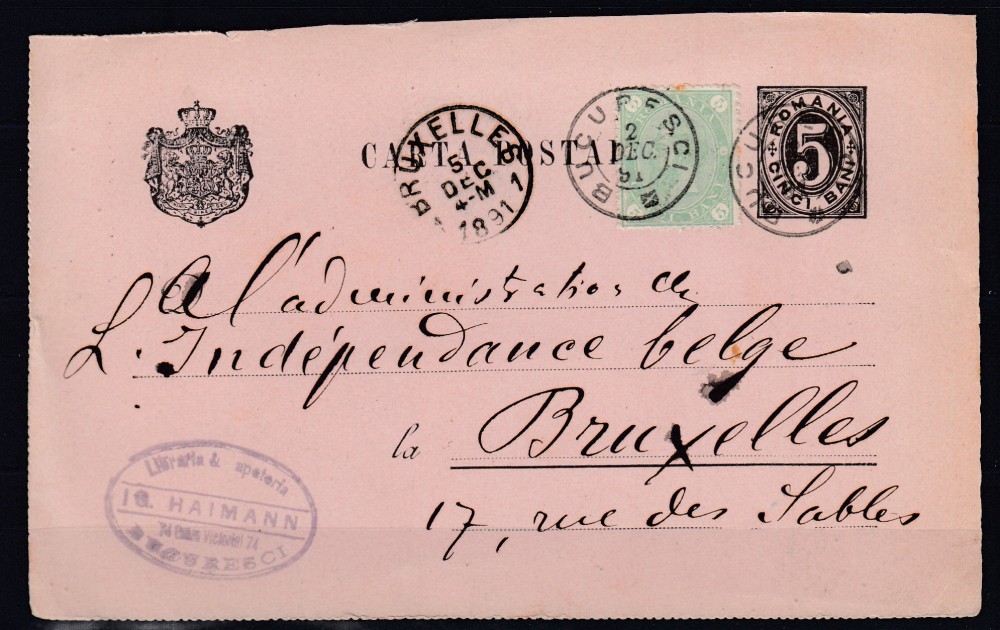 CARTA POSTALA
BRUXELLES
5
DEC.
4-M
1891
1
BUCURESCI
2
DEC.
91
5 BANI 5
ROMANIA
5
CINCI BANI
BUCU
A l'administration de
L'Indépendance belge
la Bruxelles
17, rue des Sables
Libraria & apeteria
IG. HAIMANN
74 Calea Victoriei 74
BUCURESCI